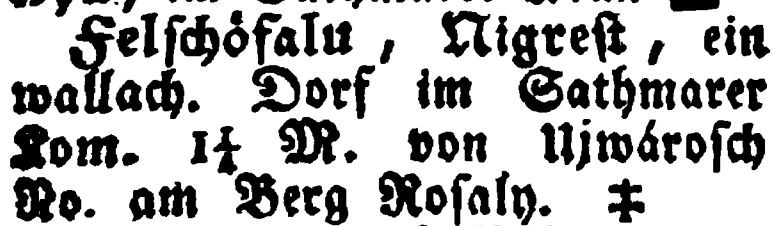 Felſchőfalu, Nigreſt, ein
wallach. Dorf im Sathmarer
Kom. 1¼ M. von Ujwároſch
No. am Berg Roſaly. ‡